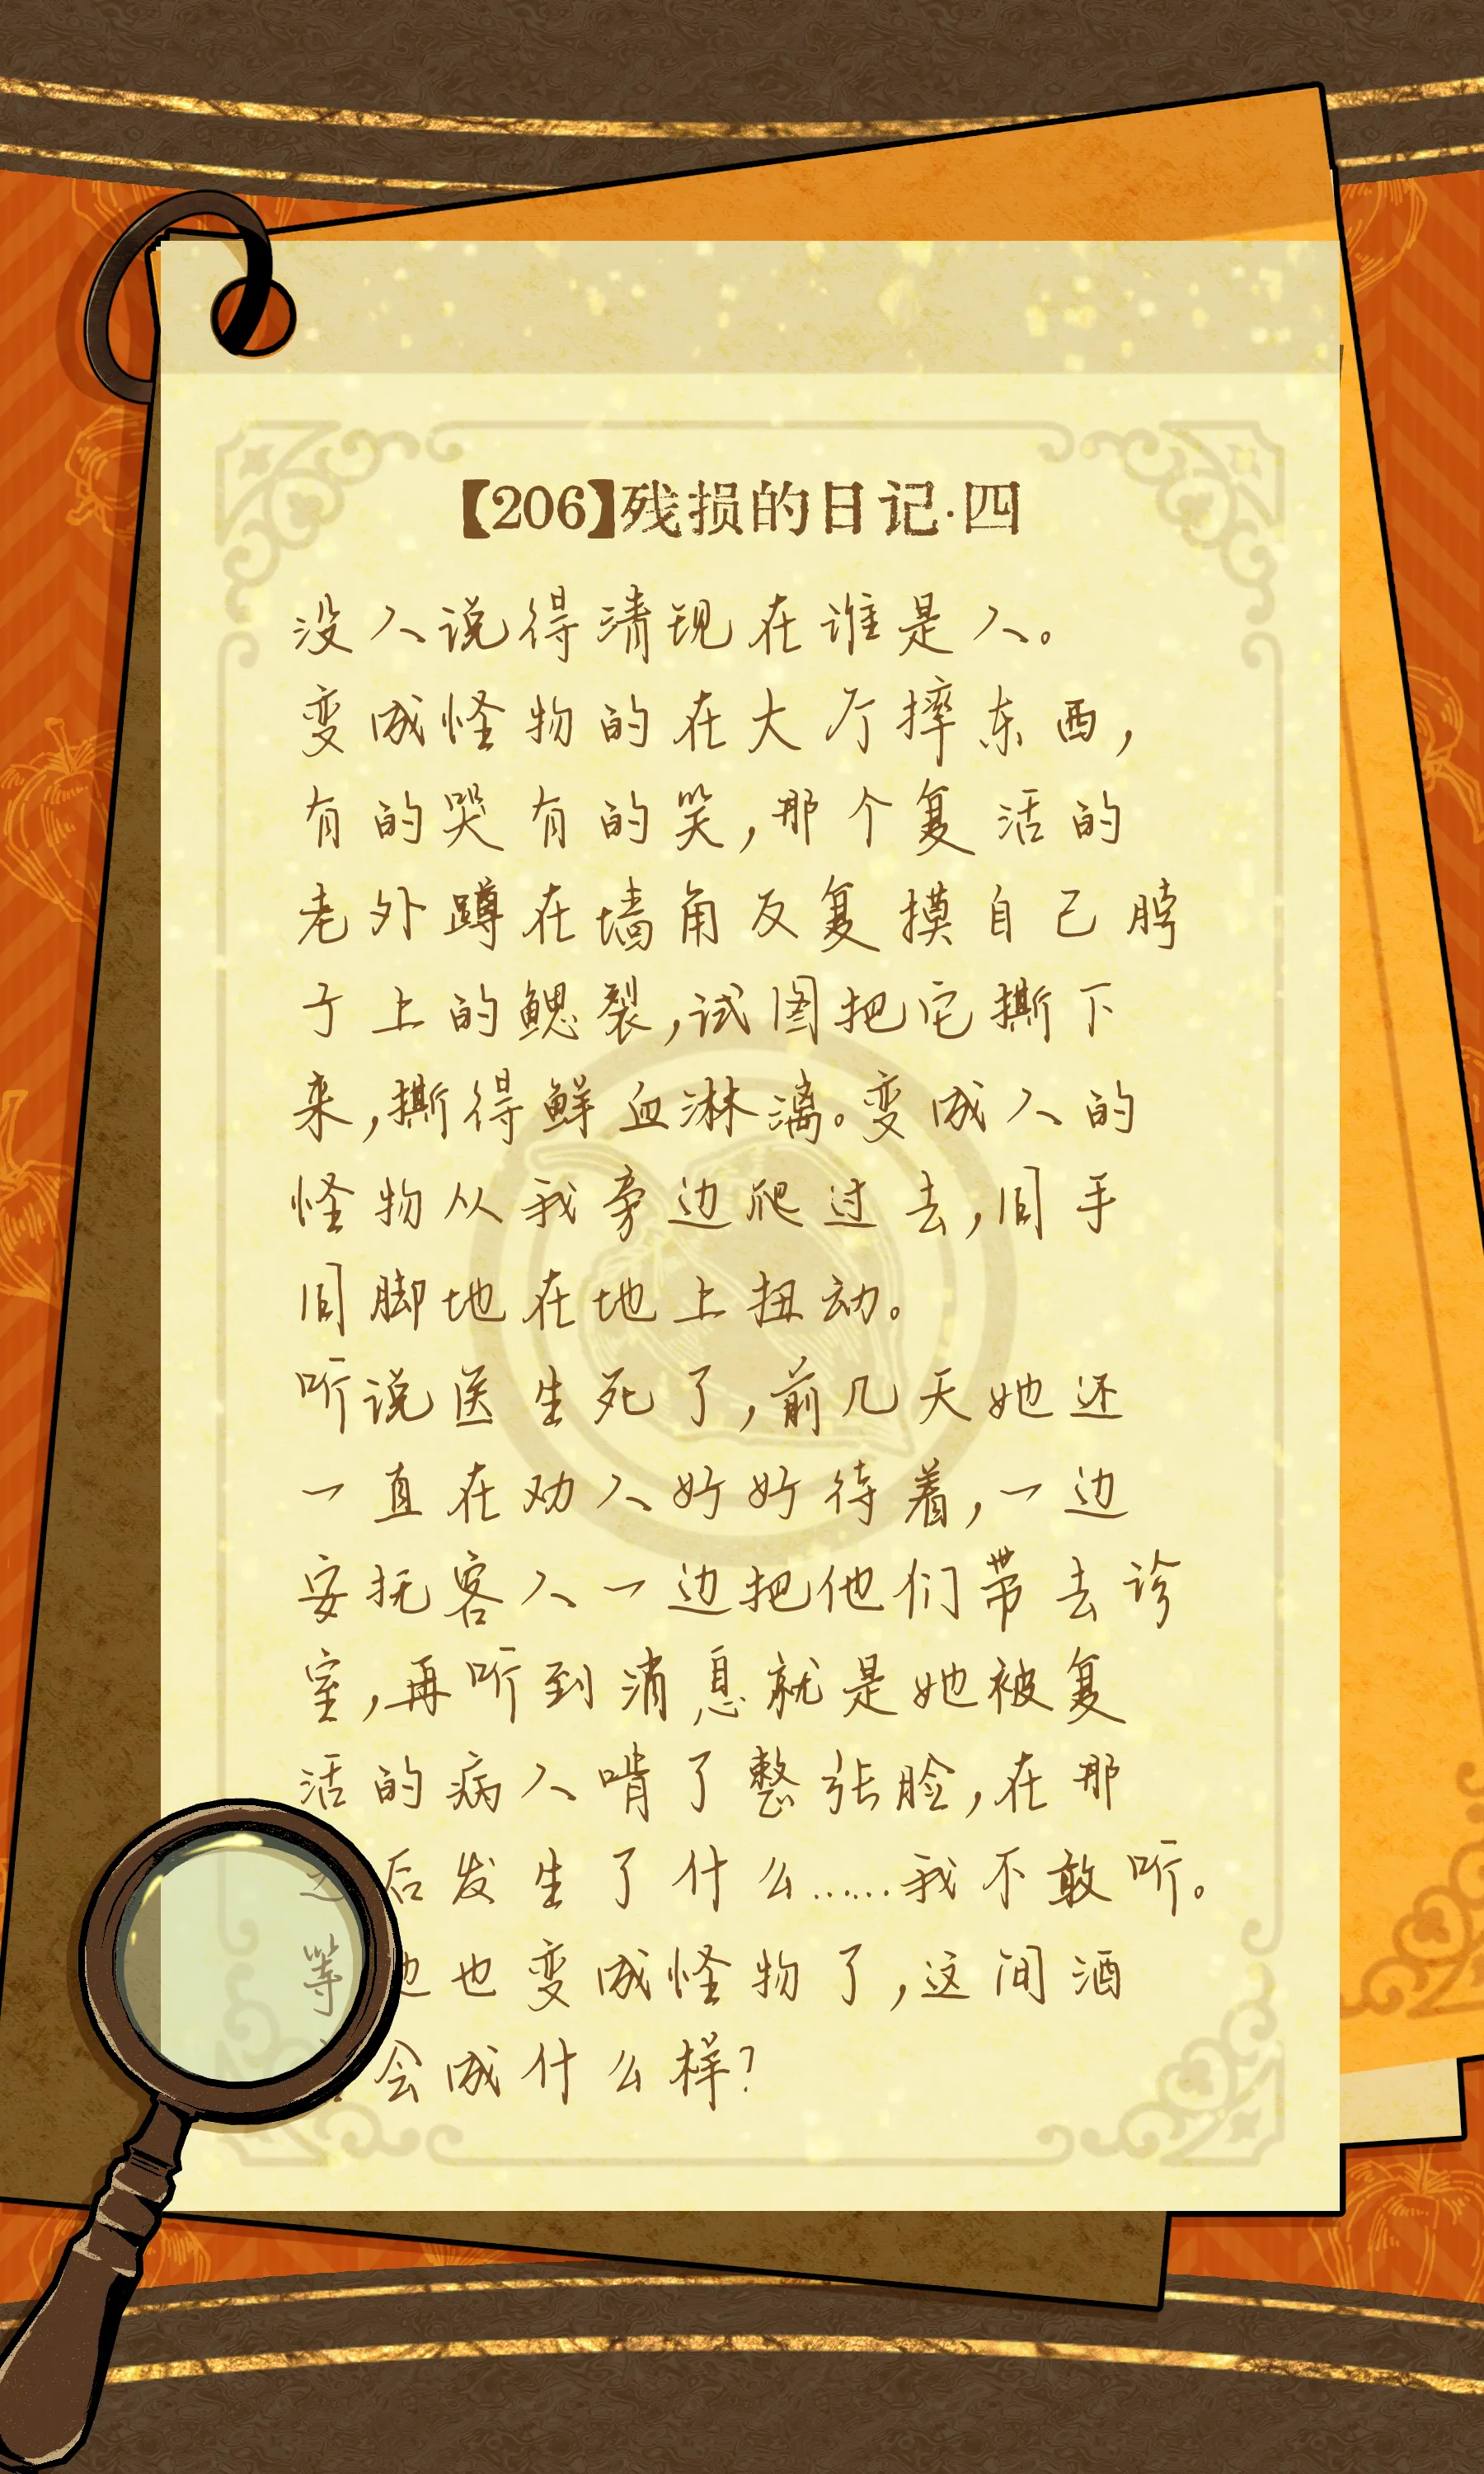 【206】残损的日记·四
没人说得清现在谁是人。
变成怪物的在大厅摔东西，
有的哭有的笑，那个复活的
老外蹲在墙角反复摸自己脖
子上的鳃裂，试图把它撕下
来，撕得鲜血淋漓。变成人的
怪物从我旁边爬过去，同手
同脚地在地上扭动。
听说医生死了，前几天她还
一直在劝人好好待着，一边
安抚客人一边把他们带去诊
室，再听到消息就是她被复
活的病人啃了整张脸，在那
之后发生了什么……我不敢听。
等她也变成怪物了，这间酒
会成什么样？